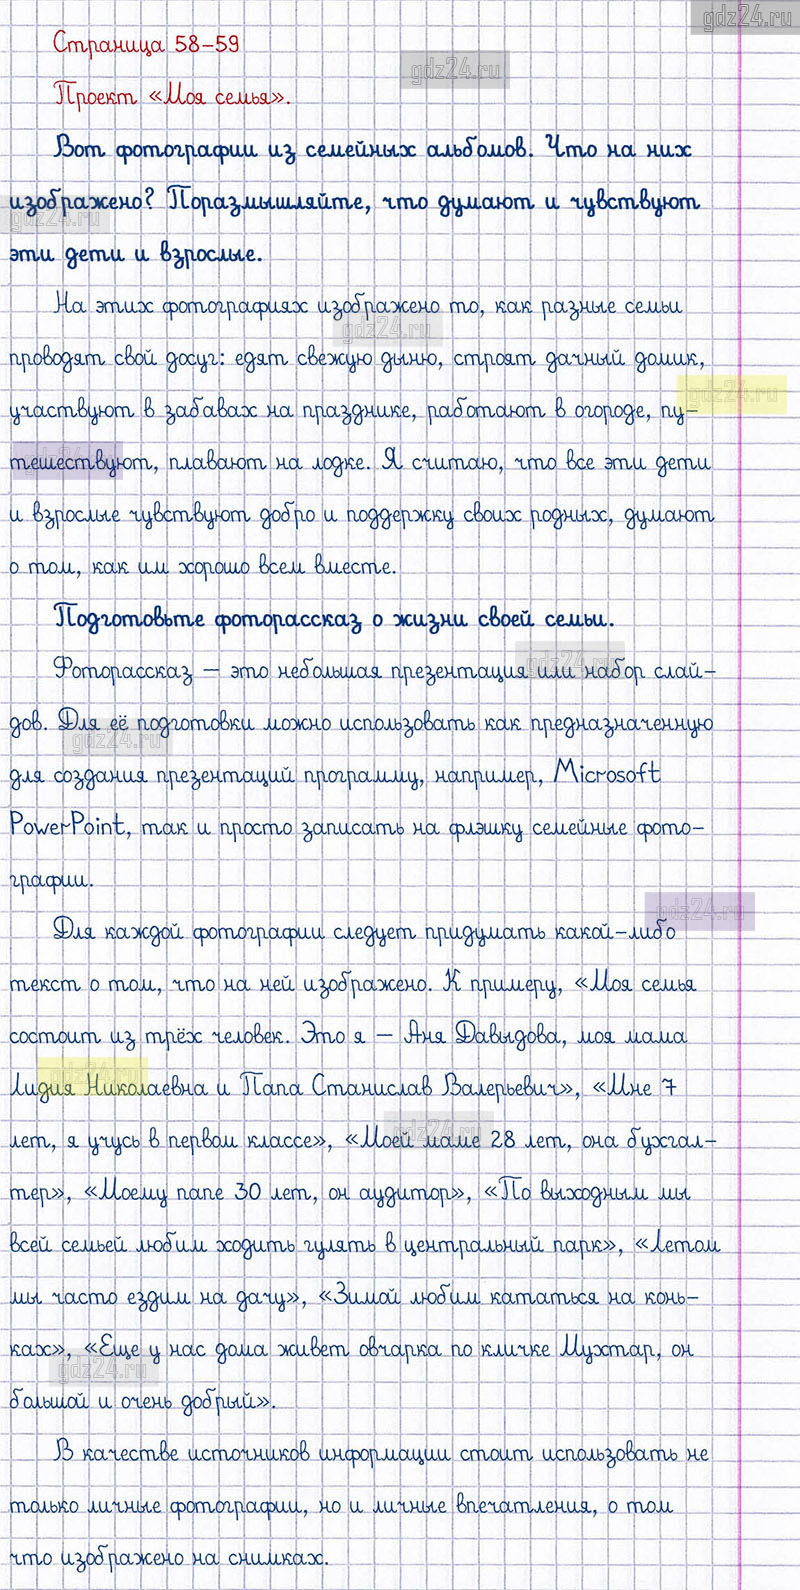 gdz24.ru
Страница 58-59
gdz24.ru
Проект «Моя семья».
Вот фотографии из семейных альбомов. Что на них
изображено? Поразмышляйте, что думают и чувствуют
gdz24.ru
эти дети и взрослые.
На этих фотографиях изображено то, как разные семьи
gdz24.ru
проводят свой досуг: едят свежую дыню, строят дачный домик,
gdz24.ru
участвуют в забавах на празднике, работают в огороде, пу-
тешествуют, плавают на лодке. Я считаю, что все эти дети
gdz24.ru
и взрослые чувствуют добро и поддержку своих родных, думают
о том, как им хорошо всем вместе.
Подготовьте фоторассказ о жизни своей семьи.
Фоторассказ – это небольшая презентация или набор слай-
gdz24.ru
дов. Для её подготовки можно использовать как предназначенную
gdz24.ru
для создания презентаций программу, например, Microsoft
PowerPoint, так и просто записать на флэшку семейные фото-
графии.
gdz24.ru
Для каждой фотографии следует придумать какой-либо
текст о том, что на ней изображено. К примеру, «Моя семья
состоит из трёх человек. Это я – Аня Давыдова, моя мама
gdz24.ru
Лидия Николаевна и Папа Станислав Валерьевич», «Мне 7
лет, я учусь в первом классе», «Моей маме 28 лет, она бухгал-
gdz24.ru
тер», «Моему папе 30 лет, он аудитор», «По выходным мы
всей семьей любим ходить гулять в центральный парк», «Летом
мы часто ездим на дачу», «Зимой любим кататься на конь-
ках», «Еще у нас дома живет овчарка по кличке Мухтар, он
gdz24.ru
большой и очень добрый».
В качестве источников информации стоит использовать не
только личные фотографии, но и личные впечатления, о том
что изображено на снимках.